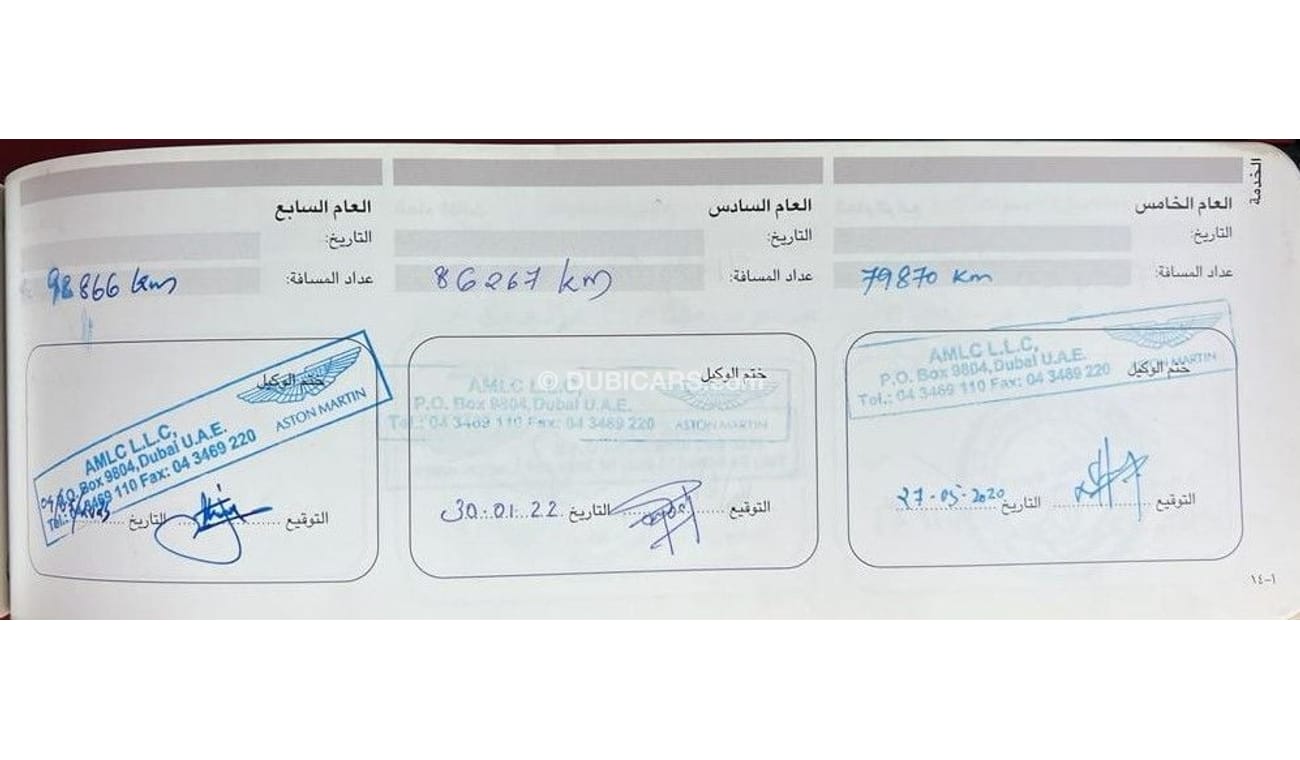 الخدمة
العام الخامس
التاريخ:
عداد المسافة: 79870 km
ختم الوكيل
AMLC L.L.C,
P.O. Box 9804, Dubai U.A.E.
Tel.: 04 3469 110 Fax: 04 3469 220
ASTON MARTIN
التوقيع التاريخ 27-05-2020
العام السادس
التاريخ:
عداد المسافة: 86267 km
ختم الوكيل
© DUBICARS.com
AMLC L.L.C,
P.O. Box 9804, Dubai U.A.E.
Tel.: 04 3469 110 Fax: 04 3469 220
ASTON MARTIN
التوقيع التاريخ 30.01.22
العام السابع
التاريخ:
عداد المسافة: 98866 km
ختم الوكيل
AMLC L.L.C,
P.O. Box 9804, Dubai U.A.E.
Tel.: 04 3469 110 Fax: 04 3469 220
ASTON MARTIN
التوقيع التاريخ
١٤-١